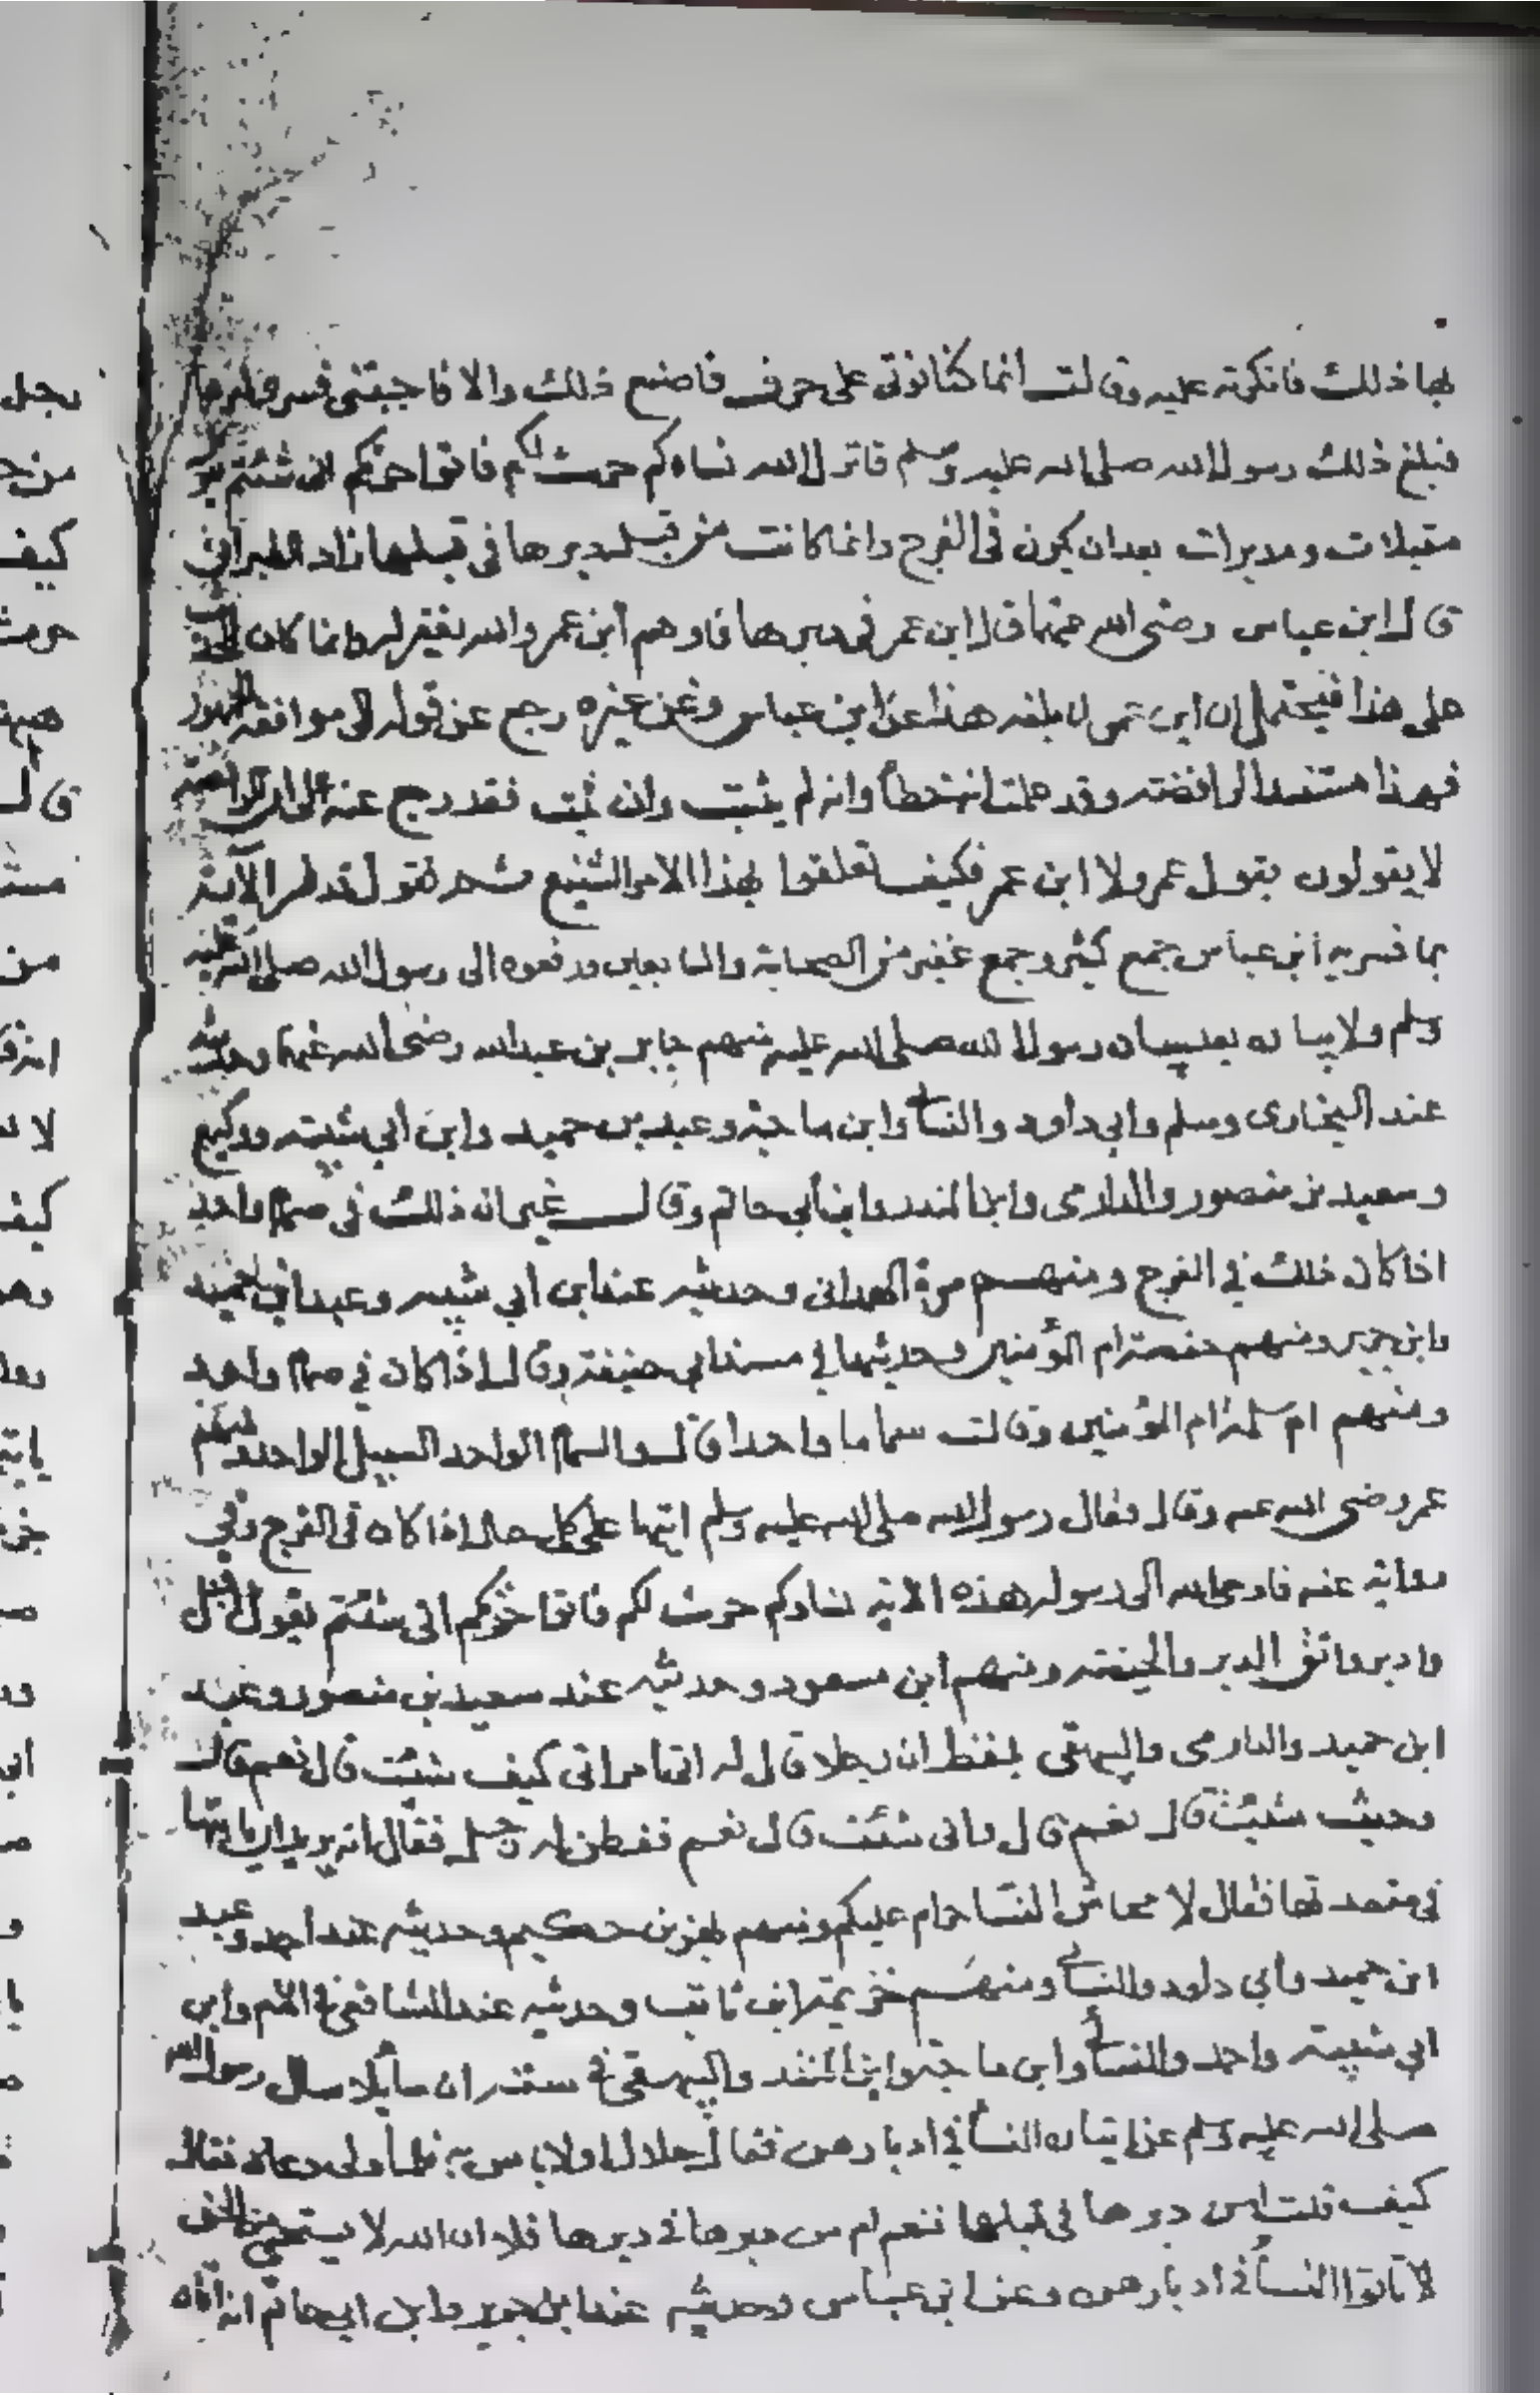 بها ذلك فانكرته عليه وقالت انما كنا نؤتى على حرف فاصنع ذلك والا فاجتنبنى فسرى امرهما
فبلغ ذلك رسول الله صلى الله عليه وسلم فانزل الله نساءكم حرث لكم فاتوا حرثكم انى شئتم
مقبلات ومدبرات بعد ان يكون فى الفرج وانما كانت من قبل دبرها فى قبلها زاد الطبرانى
قال ابن عباس رضى الله عنهما قال ابن عمر فى دبرها فاوهم ابن عمر والله يغفر له وانما كان
على هذا فيحتمل ان ابن عمر لما بلغه هذا عن ابن عباس وعن غيره رجع عن قوله الى موافقة الجمهور
فهذا مستند الرافضة وقد علمت انه خطأ وانه لم يثبت وان ثبت فقد رجع عنه
لا يقولون بقول عمر ولا ابن عمر فكيف تعلقوا بهذا الامر الشنيع ثم نقول قد فسر الآية
بما فسر به ابن عباس جمع كثير وجمع غفير من الصحابة والتابعين ورفعوه الى رسول الله صلى الله عليه
وسلم ولا بيان بعد بيان رسول الله صلى الله عليه منهم جابر بن عبدالله رضى الله عنهما وحديثه
عند البخارى ومسلم وابى داود والنسأ وابن ماجة وعبد بن حميد وابن أبى شيبة ووكيع
وسعيد بن منصور والدارمى وابن المنذر وابن أبى حاتم وقال غير ان ذلك فى صمام واحد
اذا كان ذلك فى الفرج ومنهم مرة الهمدانى وحديثه عند ابن أبى شيبة وعبد بن حميد
وابن جرير ومنهم حفصة ام المؤمنين وحديثها فى مسند ابى حنيفة وقال اذا كان فى صمام واحد
ومنهم ام سلمة ام المؤمنين وقالت سماما واحدا قال والسمام الواحد السبيل الواحد ومنهم
عمر رضى الله عنه وقال فقال رسول الله صلى الله عليه وسلم ائتها على كل حال اذا كان فى الفرج وفى
رواية عنه فاوحى الله الى رسوله هذه الاية نساؤكم حرث لكم فاتوا حرثكم انى شئتم يقول اقبل
وادبر واتق الدبر والحيضة ومنهم ابن مسعود وحديثه عند سعيد بن منصور وعبد
ابن حميد والدارمى والبيهقى بلفظ ان رجلا قال له اتى امراتى كيف شئت قال نعم قال
وحيث شئت قال نعم قال وانى شئت قال نعم ففطن له رجل فقال انه يريد ان ياتيها
فى مقعدتها فقال لا محاش النسا حرام عليكم ومنهم بهز بن حكيم وحديثه عند احمد وعبد
ابن حميد وأبى داود والنسأ ومنهم خزيمة ابن ثابت وحديثه عند الشافعى فى الام وابن
ابى شيبة واحمد والنسأ وابن ماجة وابن المنذر والبيهقى فى سننه ان سأيلا سال رسول الله
صلى الله عليه وسلم عن اتيان النسأ فى ادبارهن فقال حلال او لا باس به فلما ولى دعاه فقال
كيف قلت امن دبرها فى قبلها فنعم ام من دبرها فى دبرها فلا ان الله لا يستحى من الحق
لا تاتوا النسأ فى ادبارهن وعن ابن عباس وحديثه عند ابن جرير وابن ابى حاتم انه اتاه
رجل
من
كيف
حرث
قال
من
كيف